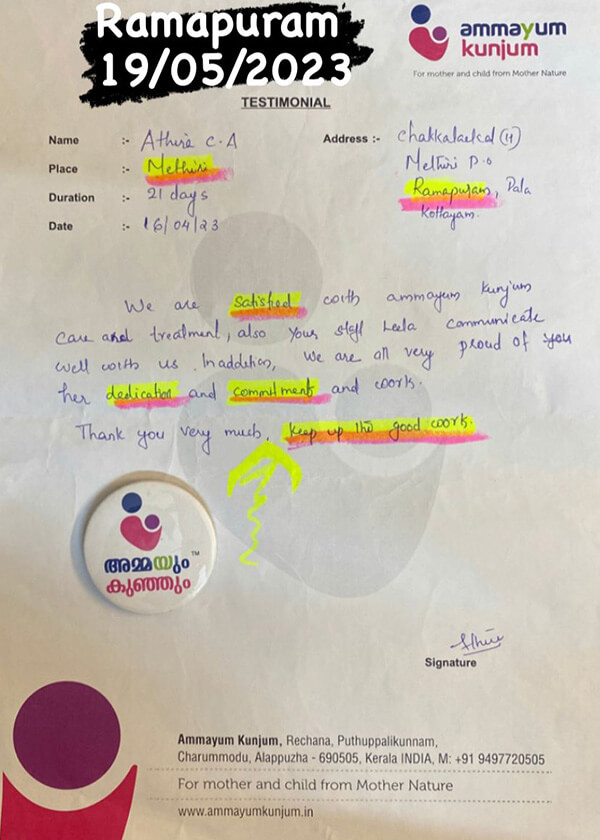 Ramapuram
19/05/2023
ammayum
kunjum
For mother and child from Mother Nature
TESTIMONIAL
Name :- Athira C.A
Address :- Chakkalackal (H)
Place :- Methiri
Methiri P.O
Duration :- 21 days
Ramapuram, Pala
Kottayam.
Date :- 16/04/23
We are satisfied with ammayum kunjum
care and treatment, also your staff Leela communicate
well with us. In addition, we are all very proud of you
her dedication and commitment and work.
Thank you very much, keep up the good work.
അമ്മയും TM
കുഞ്ഞും
Signature
Ammayum Kunjum, Rechana, Puthuppalikunnam,
Charummodu, Alappuzha - 690505, Kerala INDIA, M: +91 9497720505
For mother and child from Mother Nature
www.ammayumkunjum.in